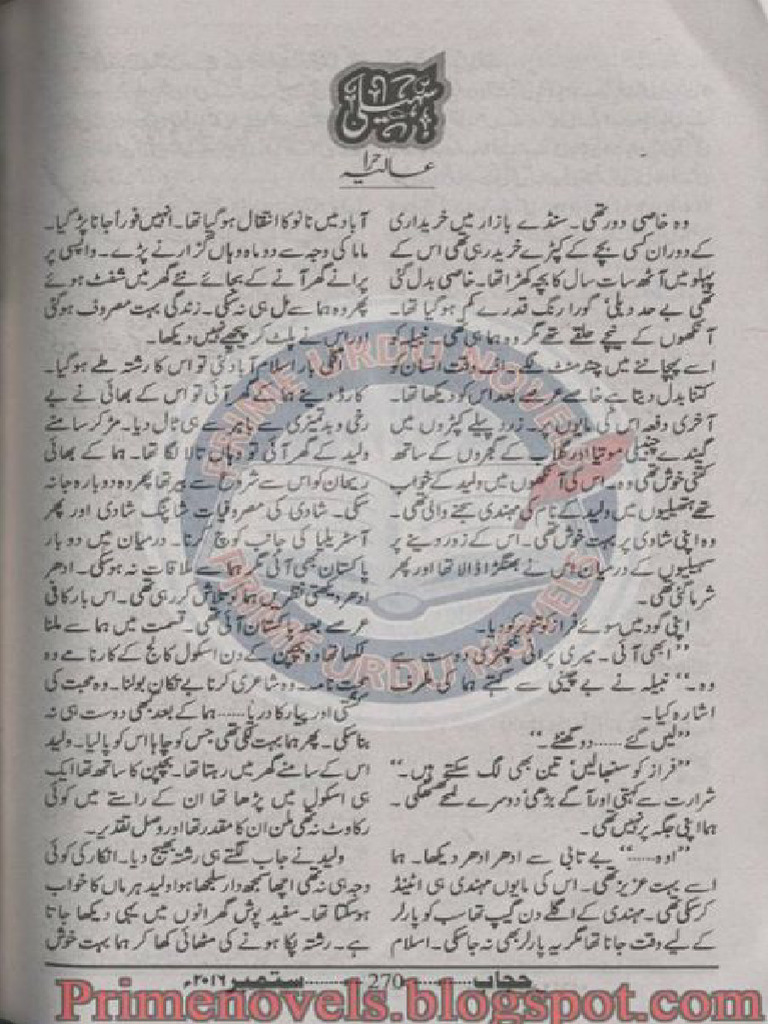 سہیلی
عالیہ حرا
وہ خاصی دور تھی۔ سنڈے بازار میں خریداری
کے دوران کسی بچے کے کپڑے خرید رہی تھی اس کے
پہلو میں آٹھ سات سال کا بچہ کھڑا تھا۔ خاصی بدل گئی
تھی بے حد دبلی، گورا رنگ قدرے کم ہوگیا تھا۔
آنکھوں کے نیچے حلقے تھے مگر وہ ہما ہی تھی۔ نبیلہ کو
اسے پہچاننے میں چند منٹ لگے۔ اف وقت انسان کو
کتنا بدل دیتا ہے خاصے عرصے بعد اس کو دیکھا تھا۔
آخری دفعہ اس کی مایوں پر۔ زرد پیلے کپڑوں میں
گیندے چنبیلی موتیا اور گلاب کے گجروں کے ساتھ
کتنی خوش تھی وہ۔ اس کی آنکھوں میں ولید کے خواب
تھے ہتھیلیوں میں ولید کے نام کی مہندی سجنے والی تھی۔
وہ اپنی شادی پر بہت خوش تھی۔ اس کے زور دینے پر
سہیلیوں کے درمیان اس نے بھنگڑا ڈالا تھا اور پھر
شرما گئی تھی۔
اپنی گود میں سوئے فراز کو شوہر کو دیا۔
”ابھی آئی۔ میری پرانی بچھڑی دوست ہے
وہ۔“ نبیلہ نے بے چینی سے کہتے ہما کی طرف
اشارہ کیا۔
”لیں گئے...... دو گھنٹے۔“
”فراز کو سنبھالیں، تین بھی لگ سکتے ہیں۔“
شرارت سے کہتی اور آگے بڑھی، دوسرے لمحے ٹھٹکی۔
ہما اپنی جگہ پر نہیں تھی۔
”اوہ......“ بے تابی سے ادھر ادھر دیکھا۔ ہما
اسے بہت عزیز تھی۔ اس کی مایوں مہندی ہی اٹینڈ
کرسکی تھی۔ مہندی کے اگلے دن گیپ تھا سب کو پارلر
کے لیے وقت جانا تھا مگر یہ پارلر بھی نہ جاسکی۔ اسلام
آباد میں نانو کا انتقال ہوگیا تھا۔ انہیں فوراً جانا پڑ گیا۔
ماما کی وجہ سے دو ماہ وہاں گزارنے پڑے۔ واپسی پر
پرانے گھر آنے کے بجائے نئے گھر میں شفٹ ہوئے
پھر وہ ہما سے مل ہی نہ سکی۔ زندگی بہت مصروف ہوگئی
اور اس نے پلٹ کر پیچھے نہیں دیکھا۔
اگلی بار اسلام آباد گئی تو اس کا رشتہ طے ہوگیا۔
کارڈ دینے ہما کے گھر آئی تو اس کے بھائی نے بے
رخی و بدتمیزی سے باہر سے ہی ٹال دیا۔ مڑ کر سامنے
ولید کے گھر آئی تو وہاں تالا لگا تھا۔ ہما کے بھائی
ریحان کو اس سے شروع سے بیر تھا پھر وہ دوبارہ جا نہ
سکی۔ شادی کی مصروفیات شاپنگ شادی اور پھر
آسٹریلیا کی جانب کوچ کرنا۔ درمیان میں دو بار
پاکستان بھی آئی مگر ہما سے ملاقات نہ ہوسکی۔ ادھر
ادھر دیکھتی نظریں ہما کو تلاش کر رہی تھی۔ اس بار کافی
عرصے بعد پاکستان آئی تھی۔ قسمت میں ہما سے ملنا
لکھا تھا وہ بچپن کے دن اسکول کالج کے کارنامے وہ
محبت نامہ۔ وہ شاعری کرنا بے تکان بولنا۔ وہ محبت کی
کشتی اور پیار کا دریا...... ہما کے بعد کبھی دوست ہی نہ
بنا سکی۔ پھر ہما بہت لکی تھی جس کو چاہا اس کو پالیا۔ ولید
اس کے سامنے گھر میں رہتا تھا۔ بچپن کا ساتھ تھا ایک
ہی اسکول میں پڑھا تھا ان کے راستے میں کوئی
رکاوٹ نہ تھی ملن ان کا مقدر تھا اور وصل تقدیر۔
ولید نے جاب لگتے ہی رشتہ بھیج دیا۔ انکار کی کوئی
وجہ ہی نہ تھی اچھا سمجھ دار سلجھا ہوا ولید ہر ماں کا خواب
ہوسکتا تھا۔ سفید پوش گھرانوں میں یہی دیکھا جاتا
ہے۔ رشتہ پکا ہونے کی مٹھائی کھا کر ہما بہت خوش
حجاب............270............ستمبر ۲۰۱۶ء
PRIME URDU NOVELS
PRIME URDU NOVELS
Primenovels.blogspot.com